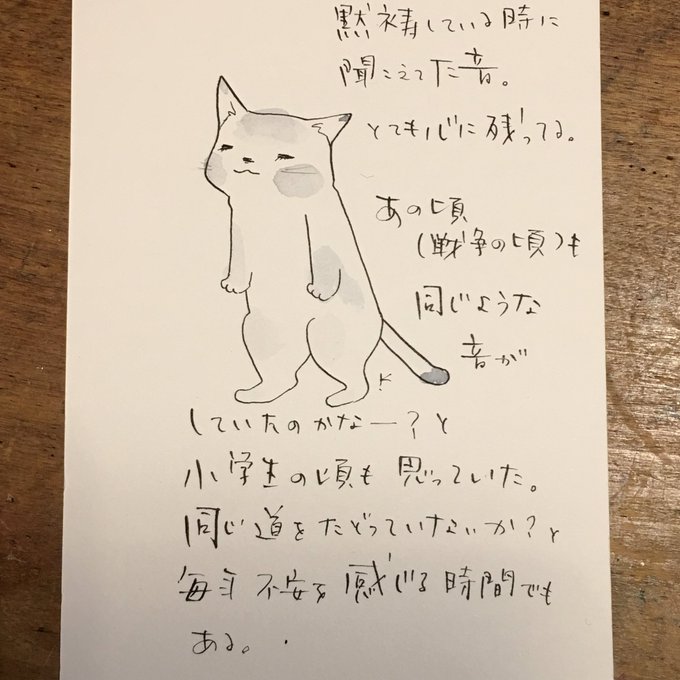 黙祷している時に
聞こえてた音。
とても心に残ってる。
あの頃
(戦争の頃)も
同じような
音が
していたのかなー?と
小学生の頃も思っていた。
同じ道をたどっていないか?と
毎年不安を感じる時間でも
ある。